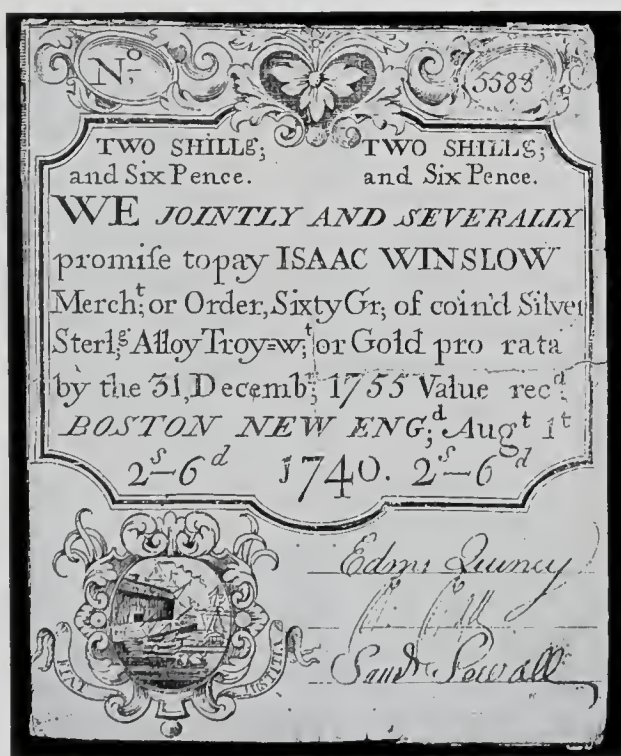 Nº 5588
TWO SHILLˢ; TWO SHILLˢ;
and Six Pence. and Six Pence.
WE JOINTLY AND SEVERALLY
promiſe to pay ISAAC WINSLOW
Merchᵗ; or Order, Sixty Gr; of coin'd Silver
Sterlᵍ; Alloy Troy=wᵗ; or Gold pro rata
by the 31, Decembʳ; 1755 Value recᵈ;
BOSTON NEW ENG;ᵈ Augᵗ 1ᵗ
2ˢ–6ᵈ 1740. 2ˢ–6ᵈ
Edmᵈ Quincy
Samˡ Sewall
FIAT JUSTITIA